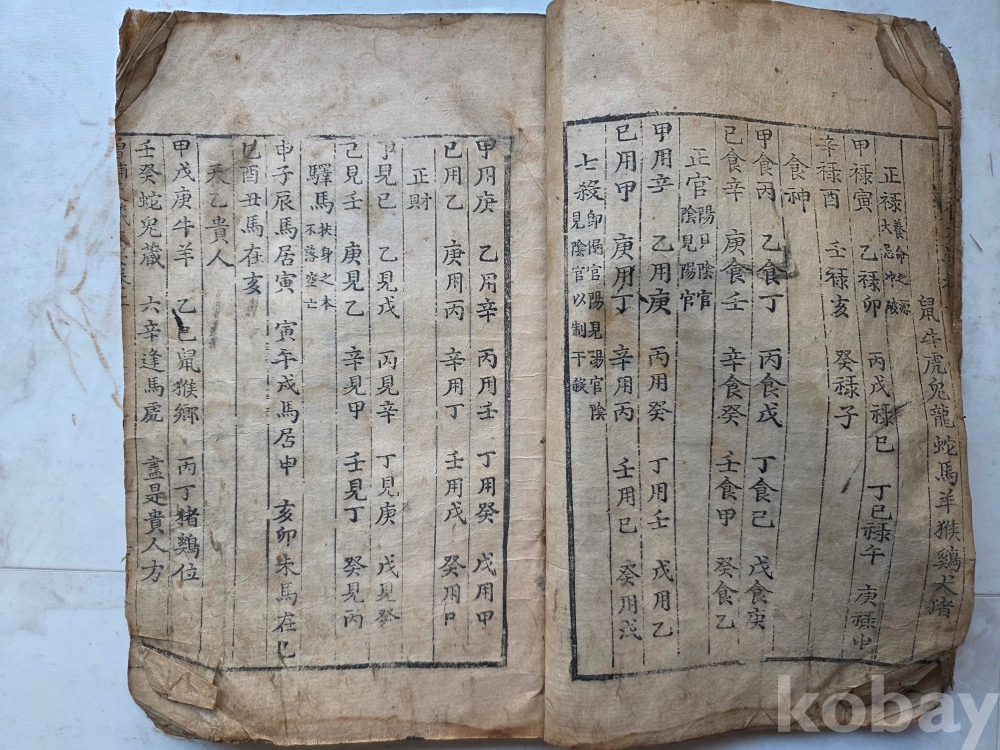 鼠牛虎兔龍蛇馬羊猴鷄犬猪
正祿 養命之源 大忌冲破
甲祿寅 乙祿卯 丙戊祿巳 丁己祿午 庚祿申
辛祿酉 壬祿亥 癸祿子
食神
甲食丙 乙食丁 丙食戊 丁食己 戊食庚
己食辛 庚食壬 辛食癸 壬食甲 癸食乙
正官 陽日陰官 陰見陽官
甲用辛 乙用庚 丙用癸 丁用壬 戊用乙
己用甲 庚用丁 辛用丙 壬用己 癸用戊
七殺 即偏官陽見陽官陰 見陰官以制干殺
甲用庚 乙用辛 丙用壬 丁用癸 戊用甲
己用乙 庚用丙 辛用丁 壬用戊 癸用
正財
甲見己 乙見戊 丙見辛 丁見庚 戊見癸
己見壬 庚見乙 辛見甲 壬見丁 癸見丙
驛馬 扶身之本 不落空亡
申子辰馬居寅 寅午戌馬居申 亥卯未馬在巳
巳酉丑馬在亥
天乙貴人
甲戊庚牛羊 乙己鼠猴鄉 丙丁猪鷄位
壬癸蛇兔藏 六辛逢馬虎 盡是貴人方
kobay